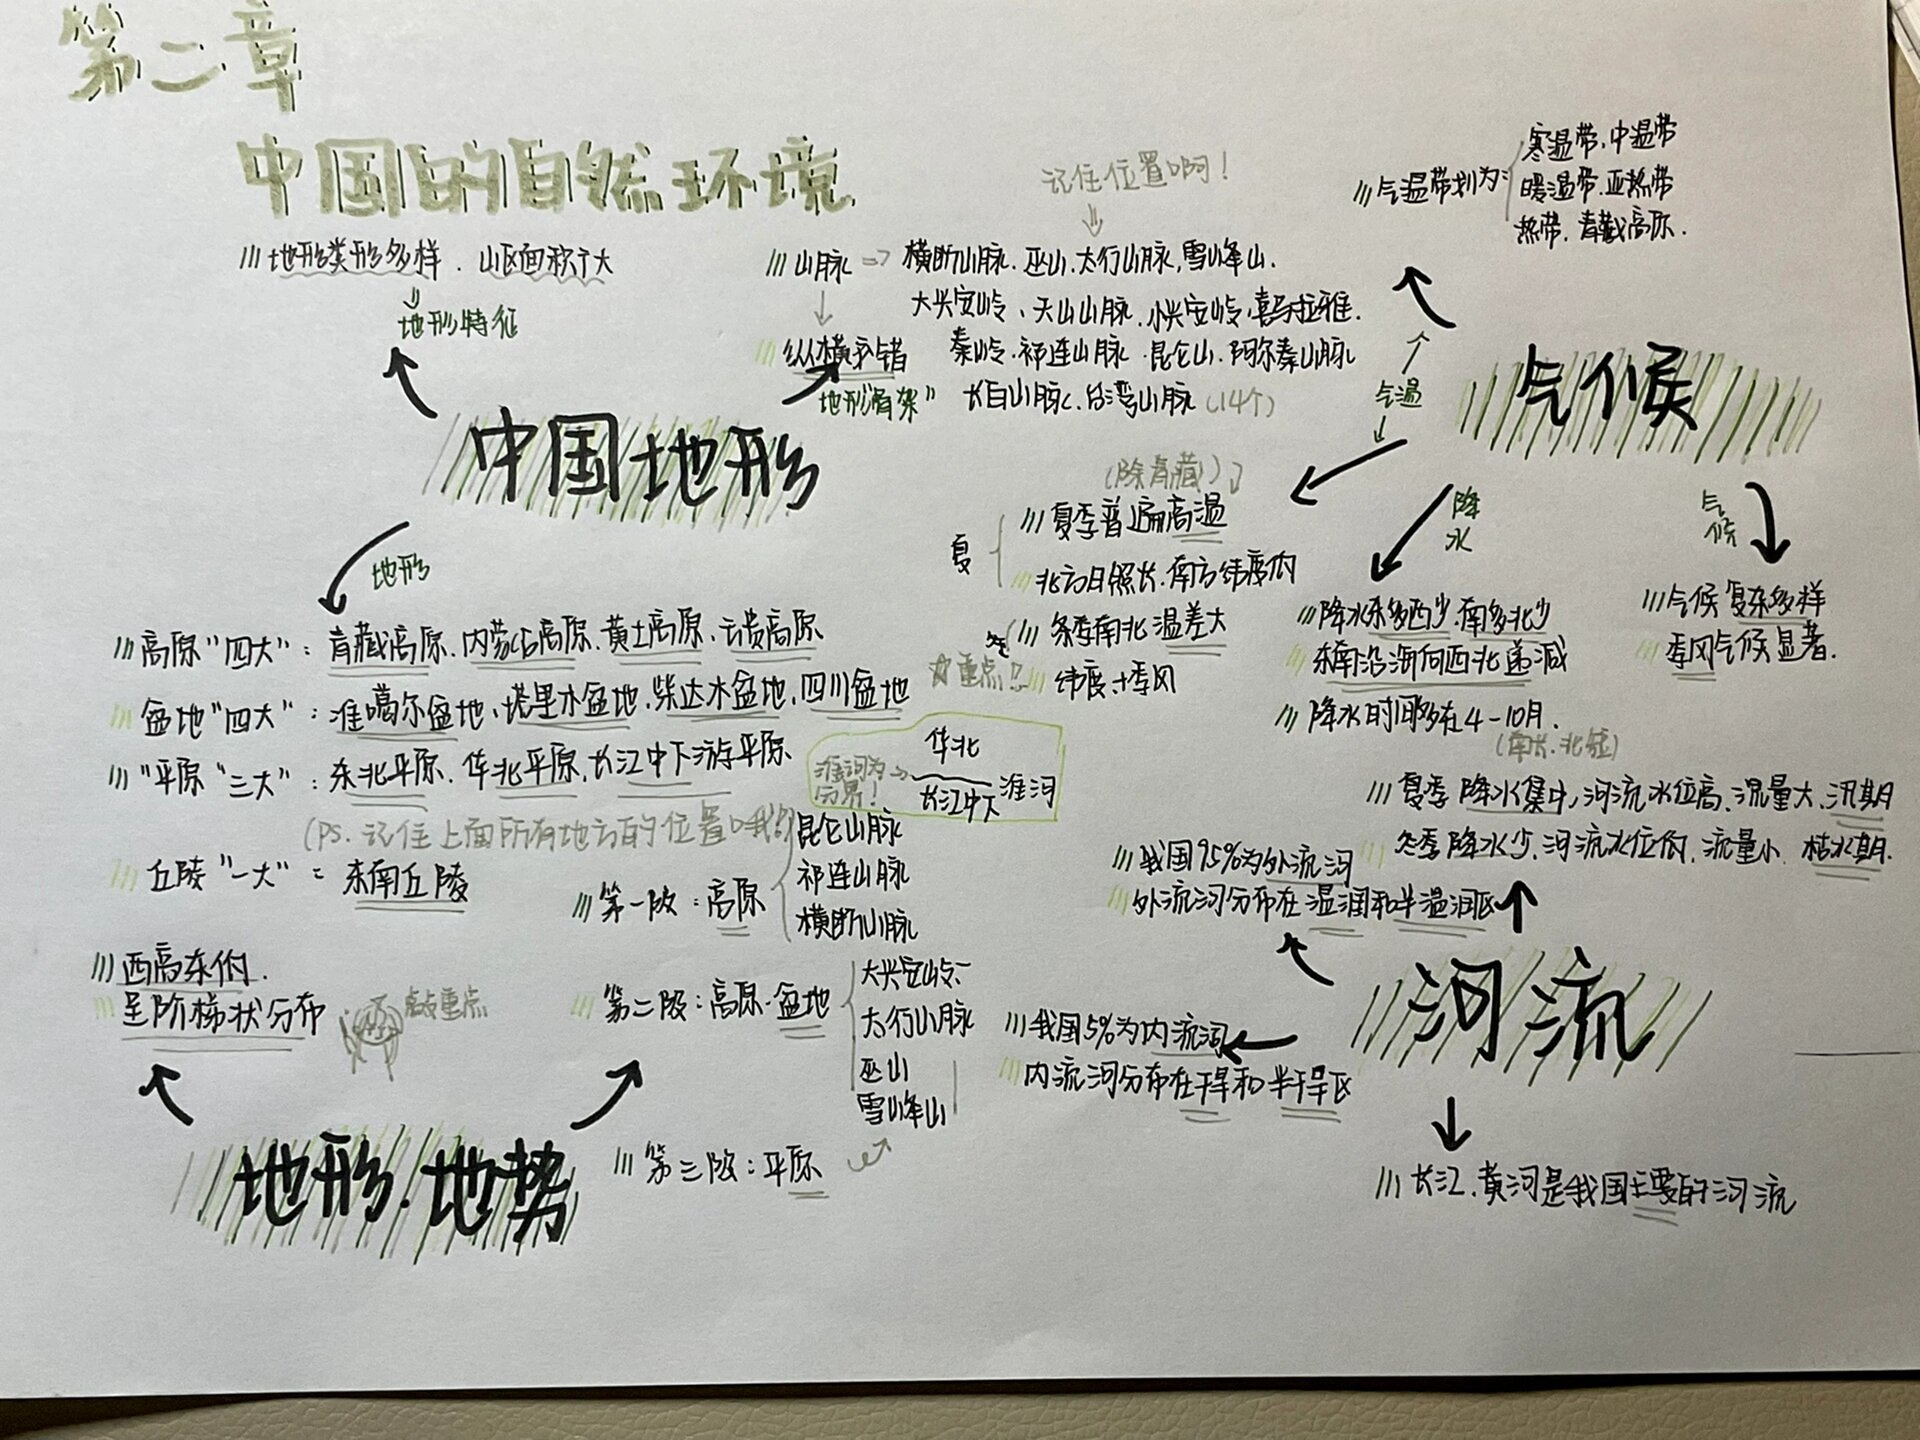 第二章
中国的自然环境
地形类形多样．山区面积广大
地形特征
中国地形
山脉
纵横交错
地形"骨架"
记住位置啊！
横断山脉．巫山．太行山脉，雪峰山．
大兴安岭、天山山脉．小兴安岭．喜马拉雅．
秦岭．祁连山脉．昆仑山．阿尔泰山脉
长白山脉．台湾山脉（14个）
地形
高原"四大"：青藏高原．内蒙古高原．黄土高原．云贵高原
盆地"四大"：准噶尔盆地，塔里木盆地．柴达木盆地．四川盆地
"平原"三大"：东北平原．华北平原，长江中下游平原
淮河为分界！
华北
长江中下
淮河
（PS．记住上面所有地方的位置哦！）
丘陵"一大"：东南丘陵
西高东低．
呈阶梯状分布
敲重点
地形．地势
第一阶：高原
昆仑山脉
祁连山脉
横断山脉
第二阶：高原．盆地
大兴安岭
太行山脉
巫山
雪峰山
第三阶：平原
气候
气温
气温带划为：
寒温带．中温带
暖温带．亚热带
热带．青藏高原．
（除青藏）
夏
夏季普遍高温
北方日照长．南方纬度低
冬
冬季南北温差大
纬度＋季风
重点！
降水
降水东多西少．南多北少
东南沿海向西北递减
降水时间多在4-10月．
（南长．北短）
气候
气候复杂多样
季风气候显著．
河流
夏季降水集中，河流水位高．流量大．汛期
冬季降水少．河流水位低．流量小．枯水期．
我国95%为外流河
外流河分布在湿润和半湿润区
我国5%为内流河
内流河分布在干旱和半干旱区
长江．黄河是我国主要的河流